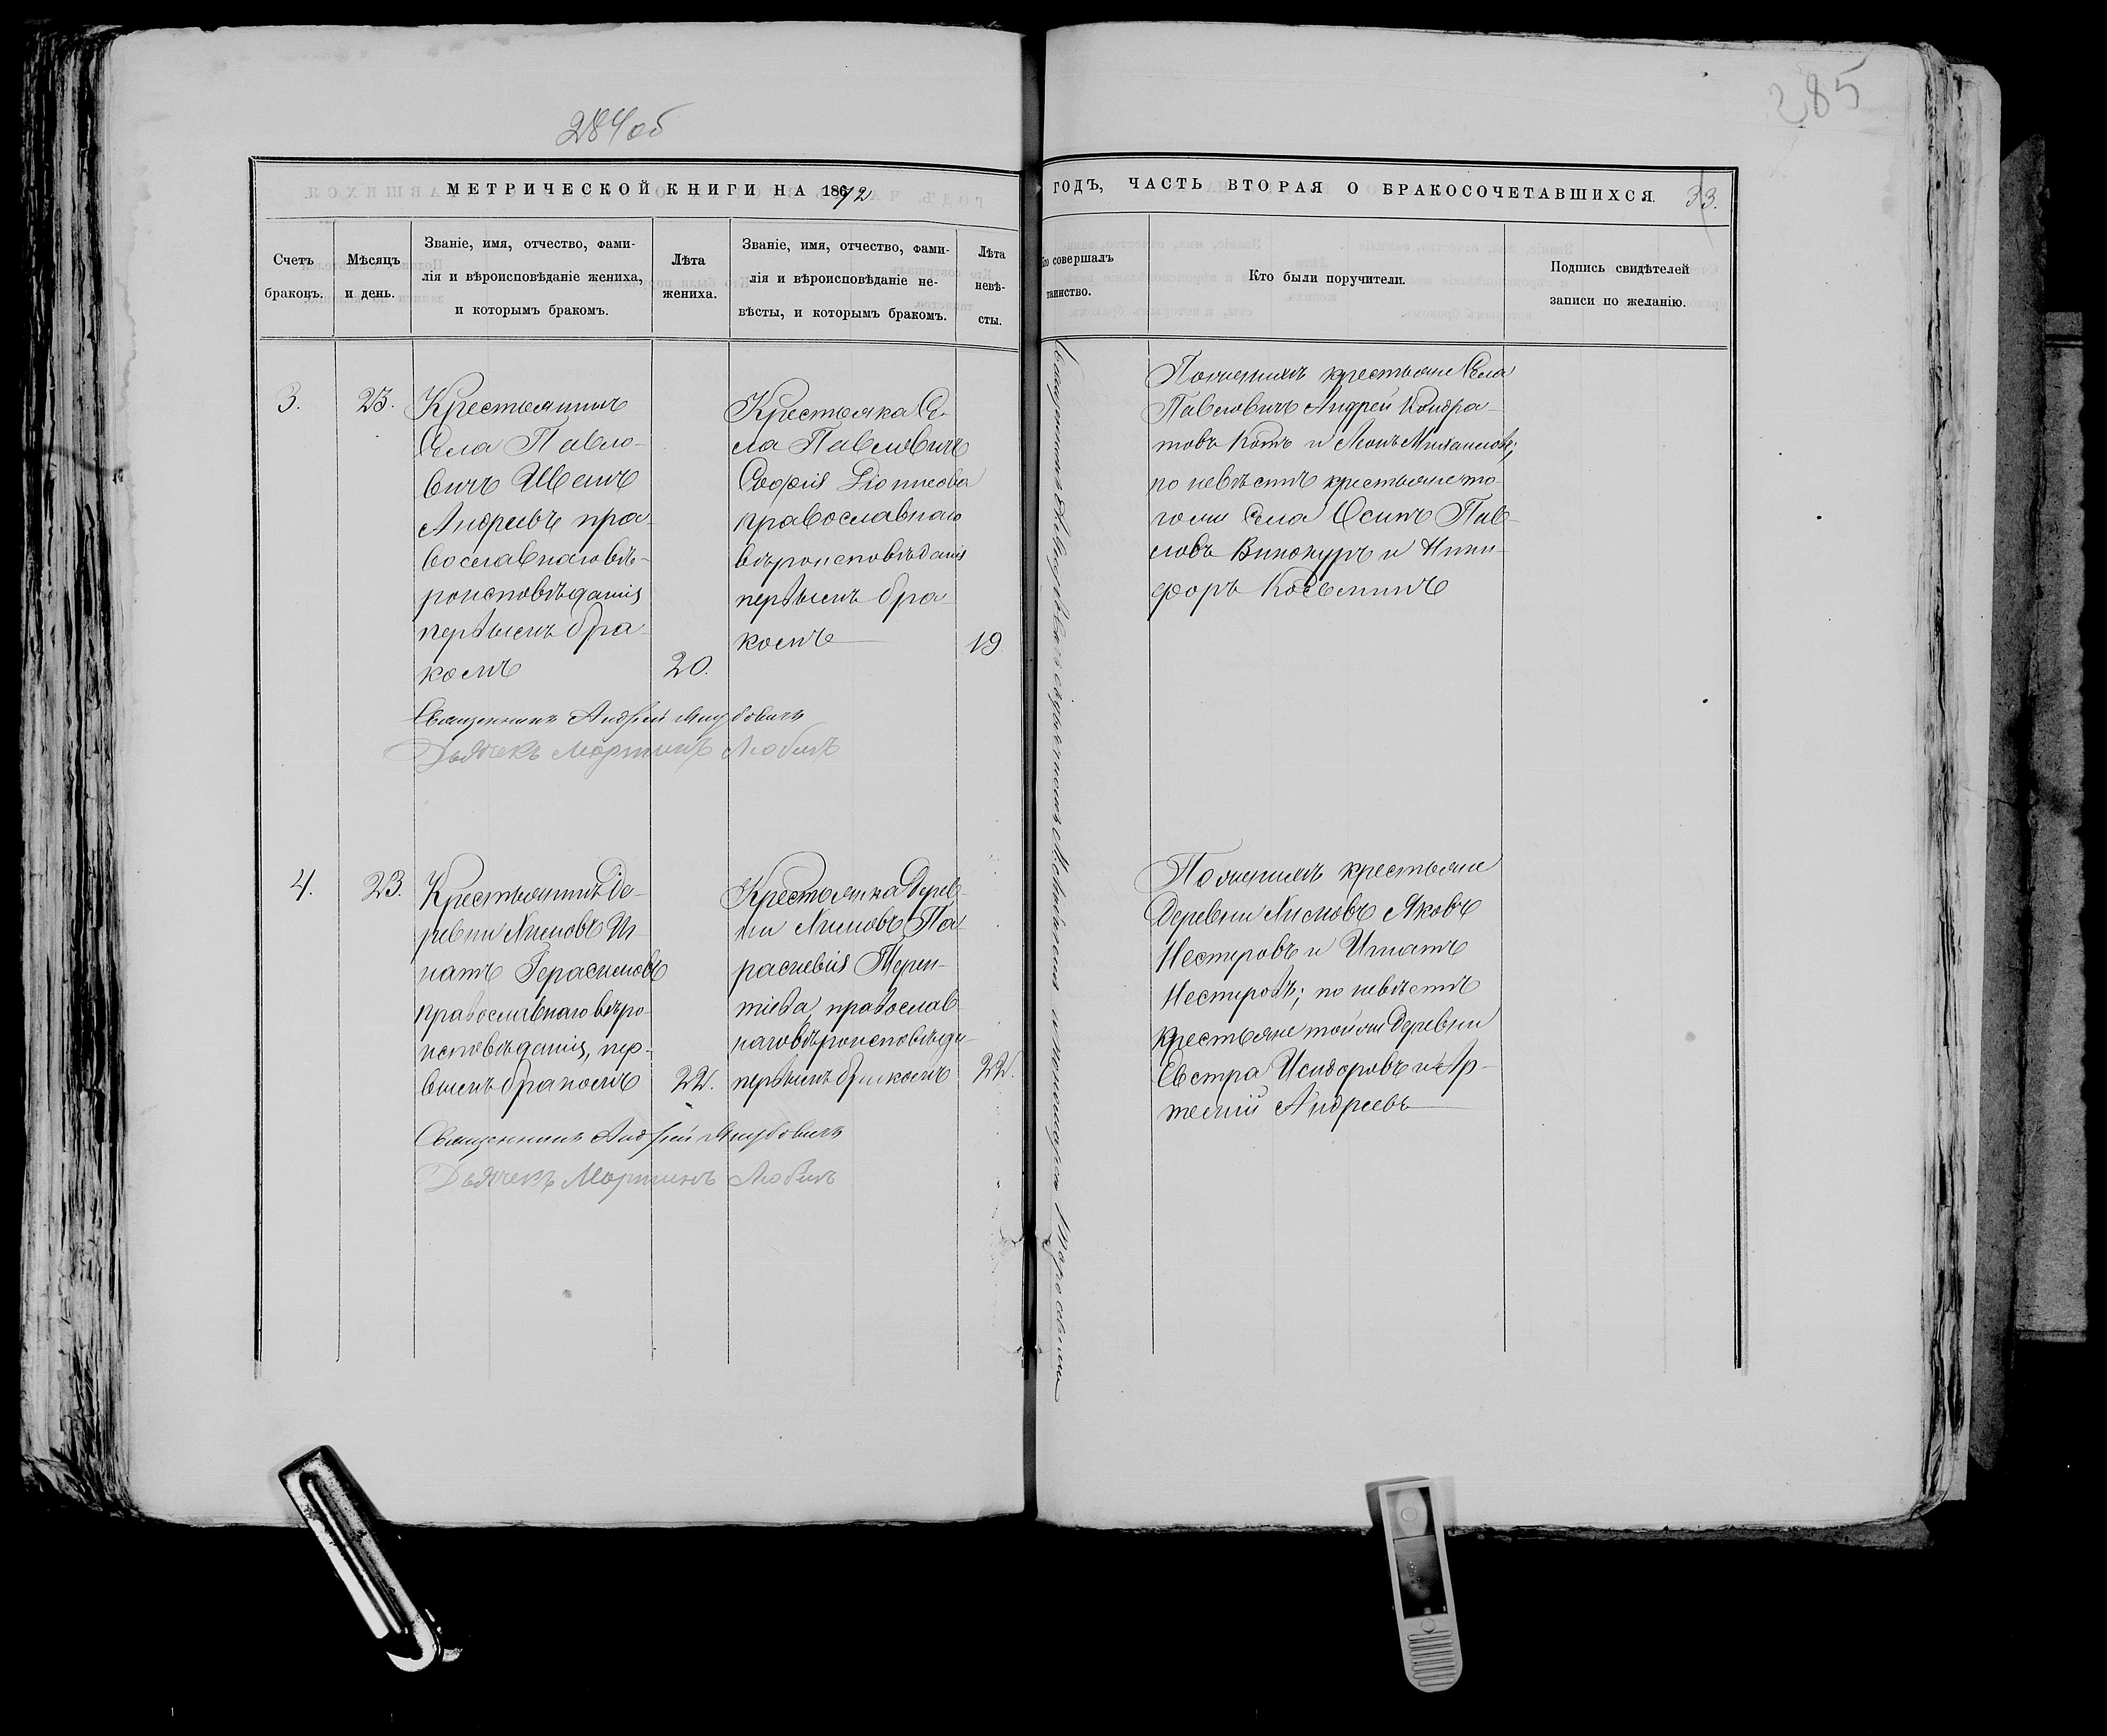 284об
285
МЕТРИЧЕСКОЙ КНИГИ НА 1872
ГОДЪ, ЧАСТЬ ВТОРАЯ О БРАКОСОЧЕТАВШИХСЯ. 33.
Счетъ браковъ.
Мѣсяцъ и день.
Званіе, имя, отчество, фами-
лія и вѣроисповѣданіе жениха,
и которымъ бракомъ.
Лѣта
жениха.
Званіе, имя, отчество, фами-
лія и вѣроисповѣданіе не-
вѣсты, и которымъ бракомъ.
Лѣта
невѣ-
сты.
Кто совершалъ
таинство.
Кто были поручители.
Подпись свидѣтелей
записи по желанію.
3.
23.
Крестьянинъ
Села Павло-
вичъ Иванъ
Андреевъ пра-
вославнаго вѣ-
роисповѣданія
первымъ бра-
комъ
20.
Крестьянка Се-
ла Павловичъ
Софія
православнаго
вѣроисповѣданія
первымъ бра-
комъ
19
По женихѣ крестьяне Села
Павловичъ Андрей Кондра-
товъ Котъ и Леонъ Михаиловъ;
по невѣстѣ крестьяне то-
гоже Села Осипъ Пав-
ловъ Винокуръ и Ники-
форъ
Священникъ Андрей
Дьячекъ Мартинъ
4.
23.
Крестьянинъ Де-
ревни Иг-
натъ Герасимовъ
православнаго вѣро-
исповѣданія, пер-
вымъ бракомъ
22.
Крестьянка Дерев-
ни Па-
раскевія Терен-
тіева, православ-
наго вѣроисповѣда-
первымъ бракомъ
22.
По женихѣ крестьяне
Деревни Яковъ
Нестеровъ и Игнатъ
Нестеровъ; по невѣстѣ
крестьяне тойже Деревни
Евстра Исидоровъ и Ар-
темій Андреевъ
Священникъ Андрей
Дьячекъ Мартинъ